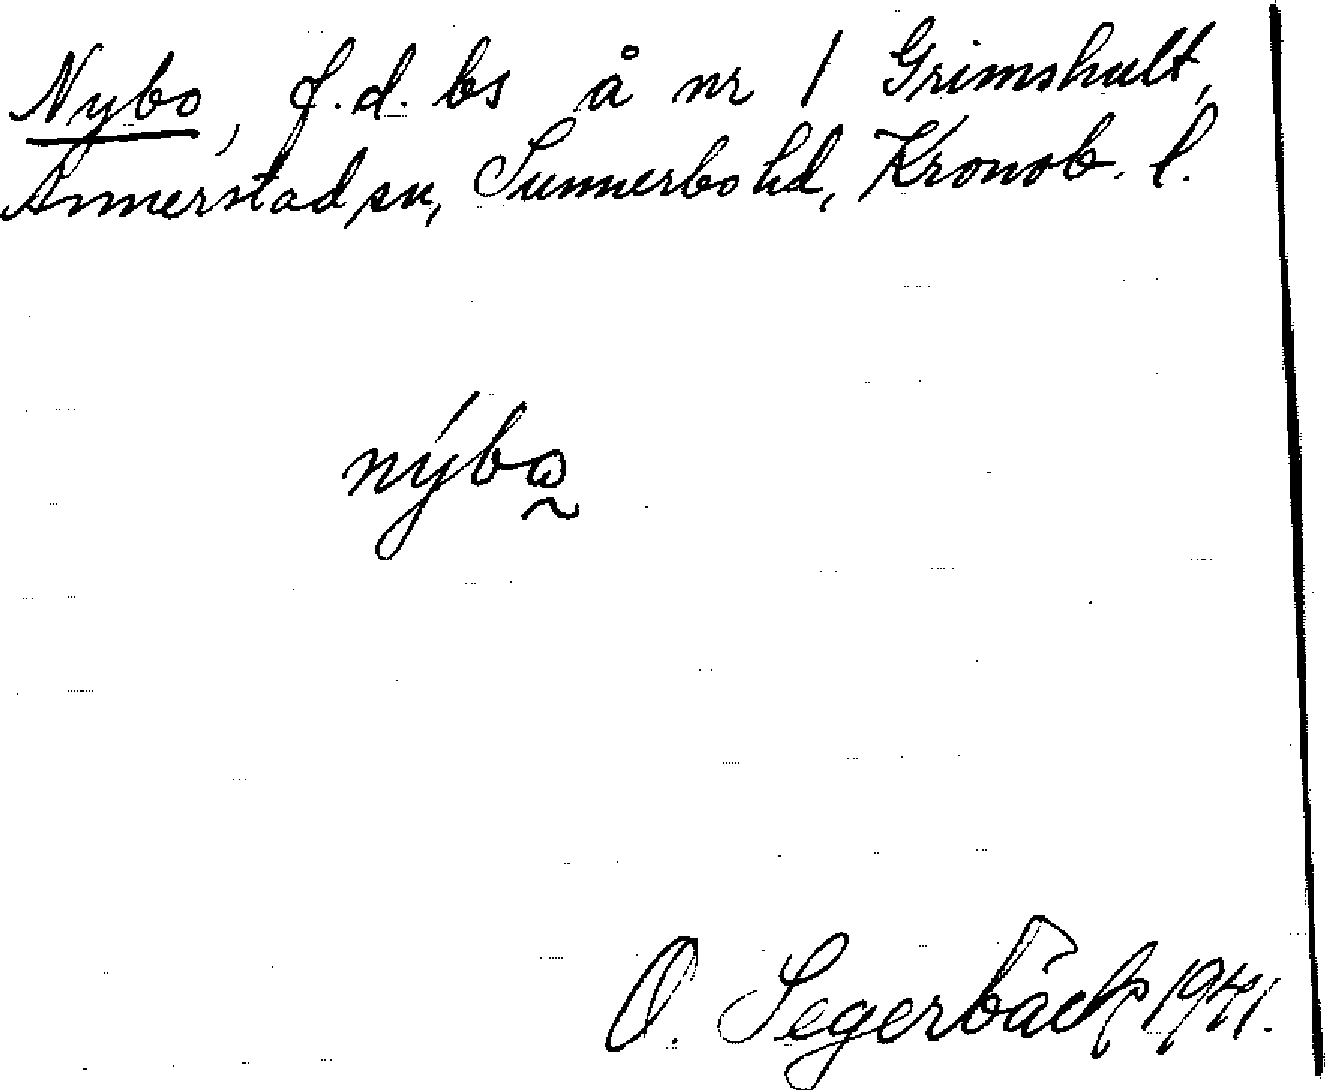 Nybo, f.d. bs å nr 1 Grimshult,
Annerstad sn, Sunnerbo hd, Kronob. l.
nýbo̰
O. Segerbäck 1941.